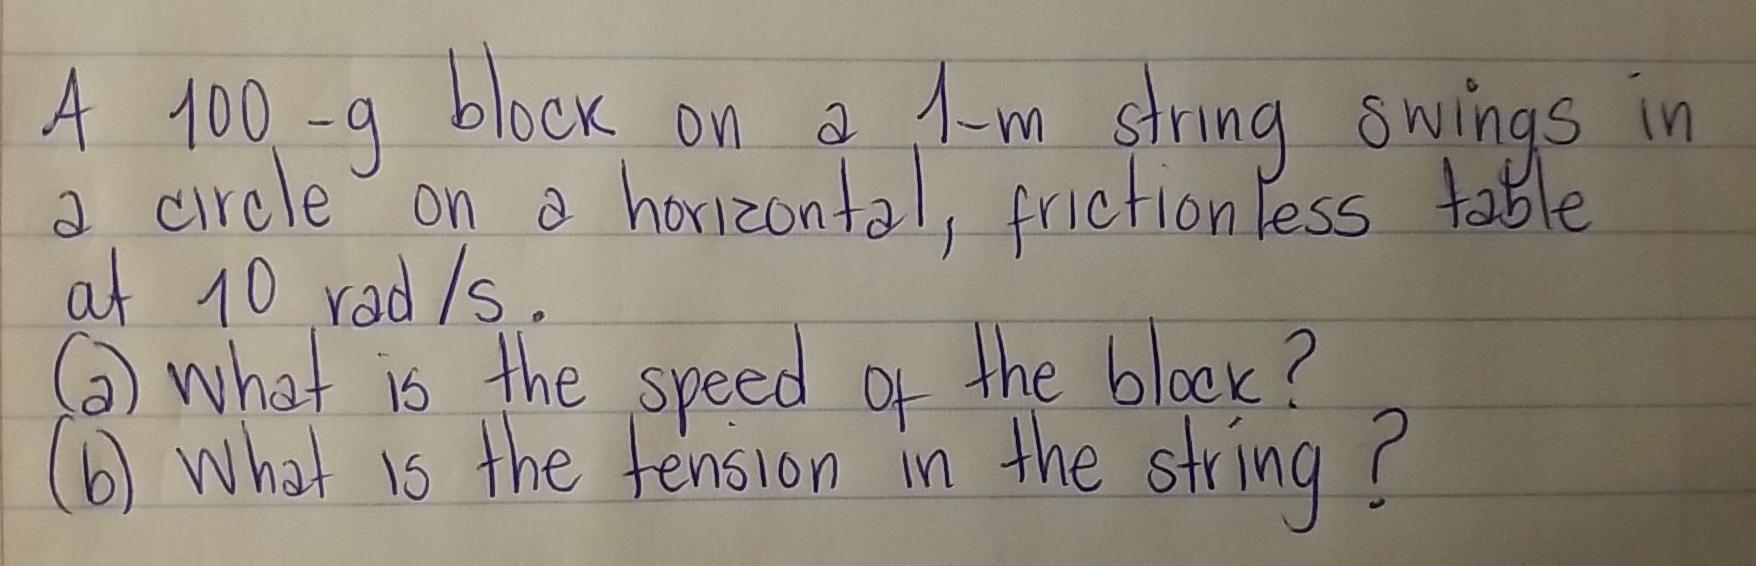 A 100-g block on a 1-m string swings in
a circle on a horizontal, frictionless table
at 10 rad/s.
(a) What is the speed of the block?
(b) What is the tension in the string?